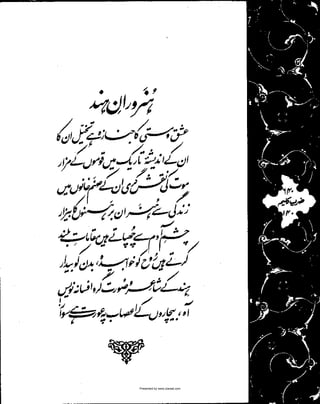 ہنرورانِ ہند
عشق و مستی کا جنازہ ہے تخیل ان کا
ان کے اندیشۂ تاریک میں قوموں کے مزار
موت کی نقش گری ان کے صنم خانوں میں
زندگی سے ہنر ان برہمنوں کا بیزار
چشمِ آدم سے چھپاتے ہیں مقاماتِ بلند
کرتے ہیں روح کو خوابیدہ، بدن کو بیدار
ہند کے شاعر و صورت گر و افسانہ نویس
آہ، بیچاروں کے اعصاب پہ عورت ہے سوار
ضربِ کلیم
Presented by www.iqbalali.com